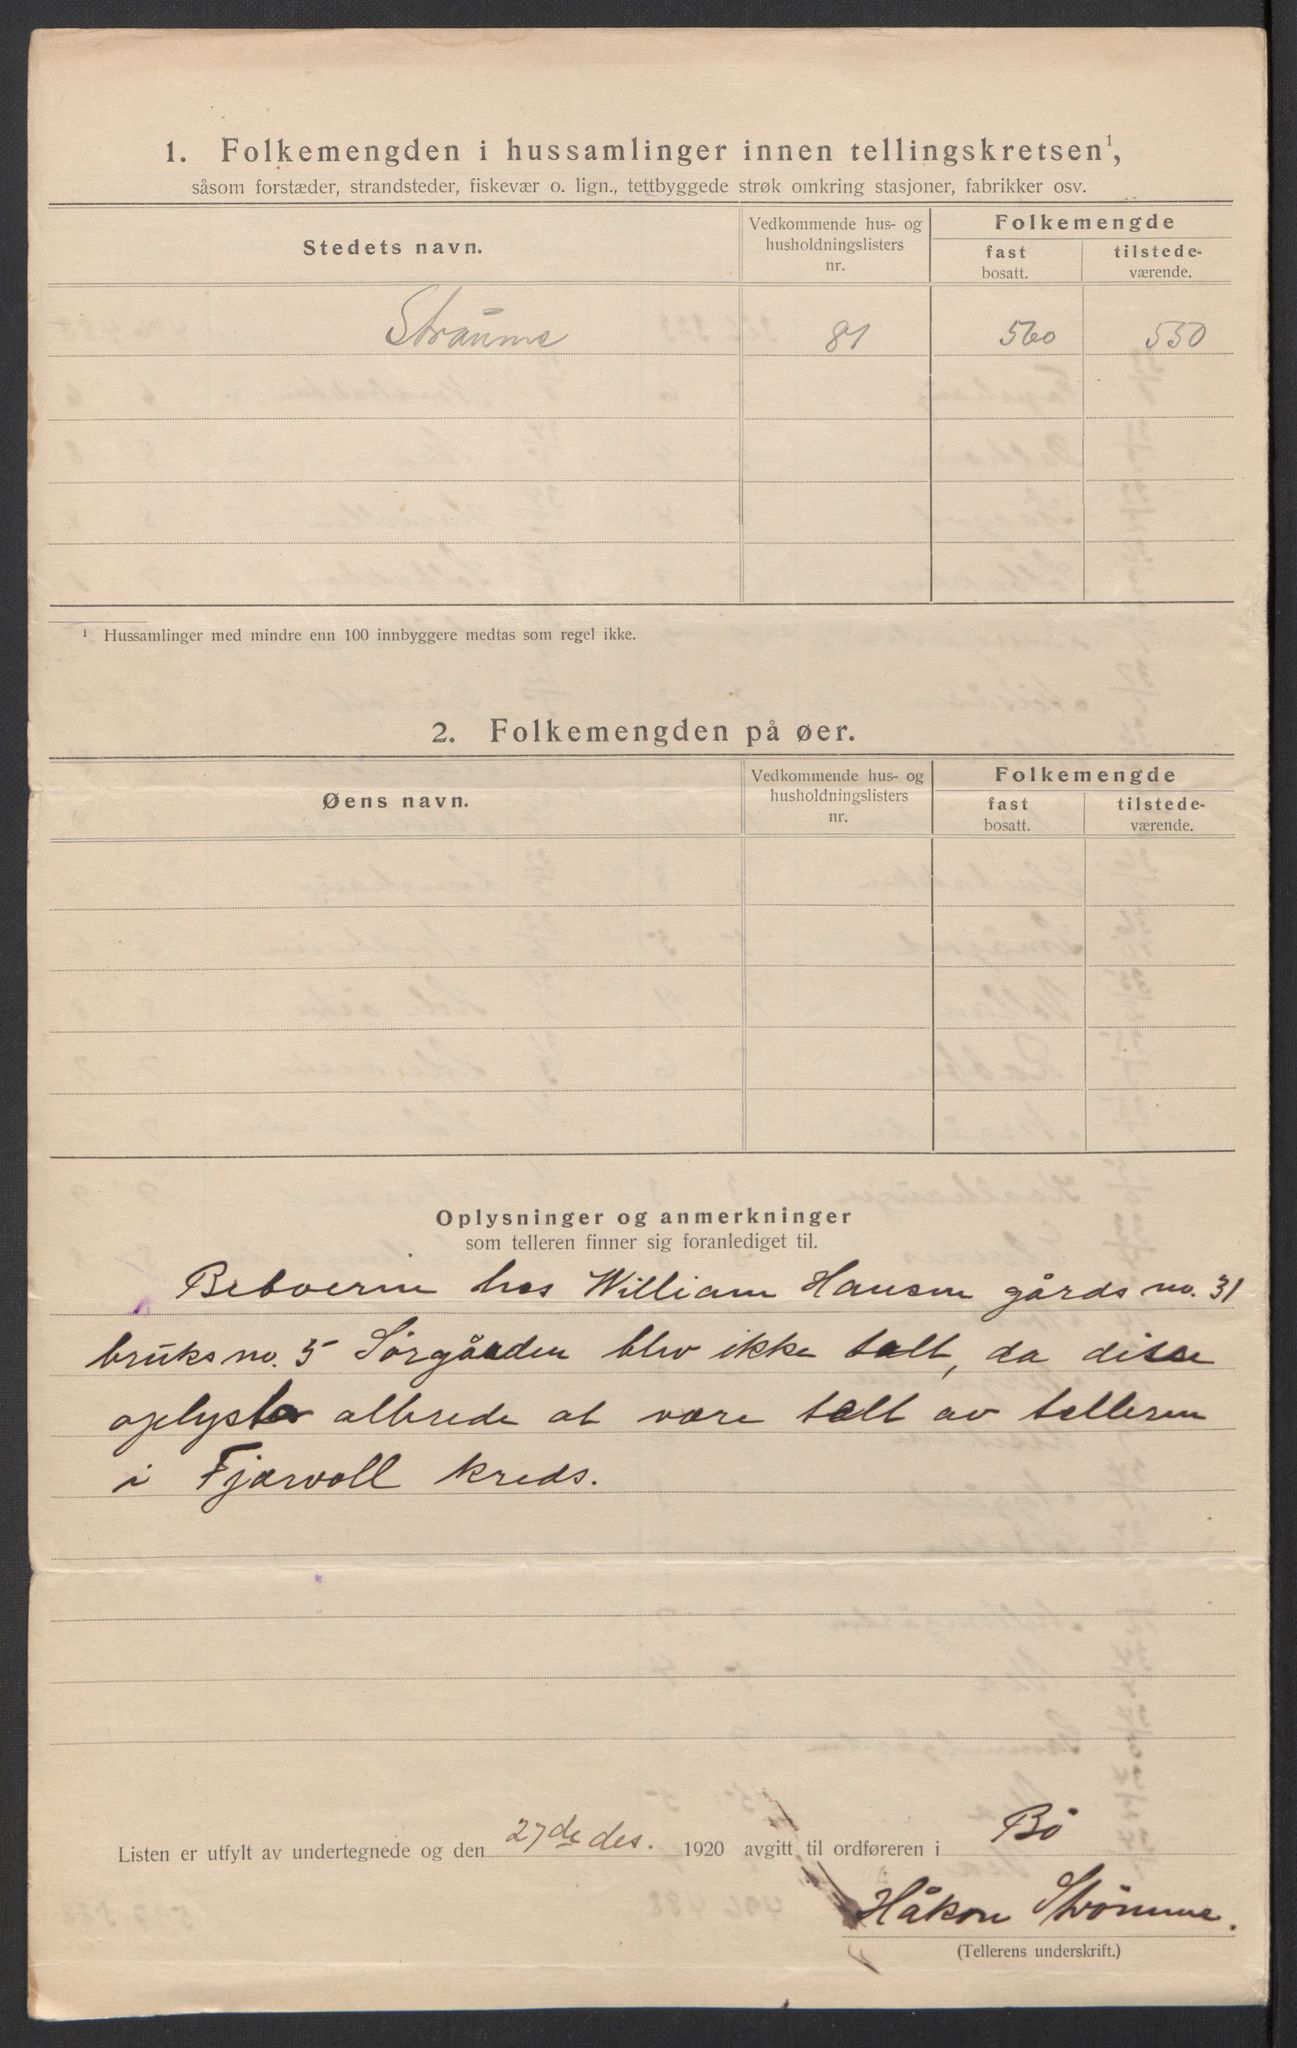 1. Folkemengden i hussamlinger innen tellingskretsen¹,
såsom forstæder, strandsteder, fiskevær o. lign., tettbyggede strøk omkring stasjoner, fabrikker osv.
Stedets navn.
Vedkommende hus- og husholdningslisters nr.
Folkemengde
fast bosatt.
tilstede-værende.
Straume 81 560 550
¹ Hussamlinger med mindre enn 100 innbyggere medtas som regel ikke.
2. Folkemengden på øer.
Øens navn.
Vedkommende hus- og husholdningslisters nr.
Folkemengde
fast bosatt.
tilstede-værende.
Oplysninger og anmerkninger
som telleren finner sig foranlediget til.
Beboerne hos William Hansen gårds no. 31
bruks no. 5 Sørgården blev ikke talt, da disse
oplyste allerede at være talt av telleren
i Fjærvoll kreds.
Listen er utfylt av undertegnede og den 27de des. 1920 avgitt til ordføreren i Bø
Håkon Strømme.
(Tellerens underskrift.)